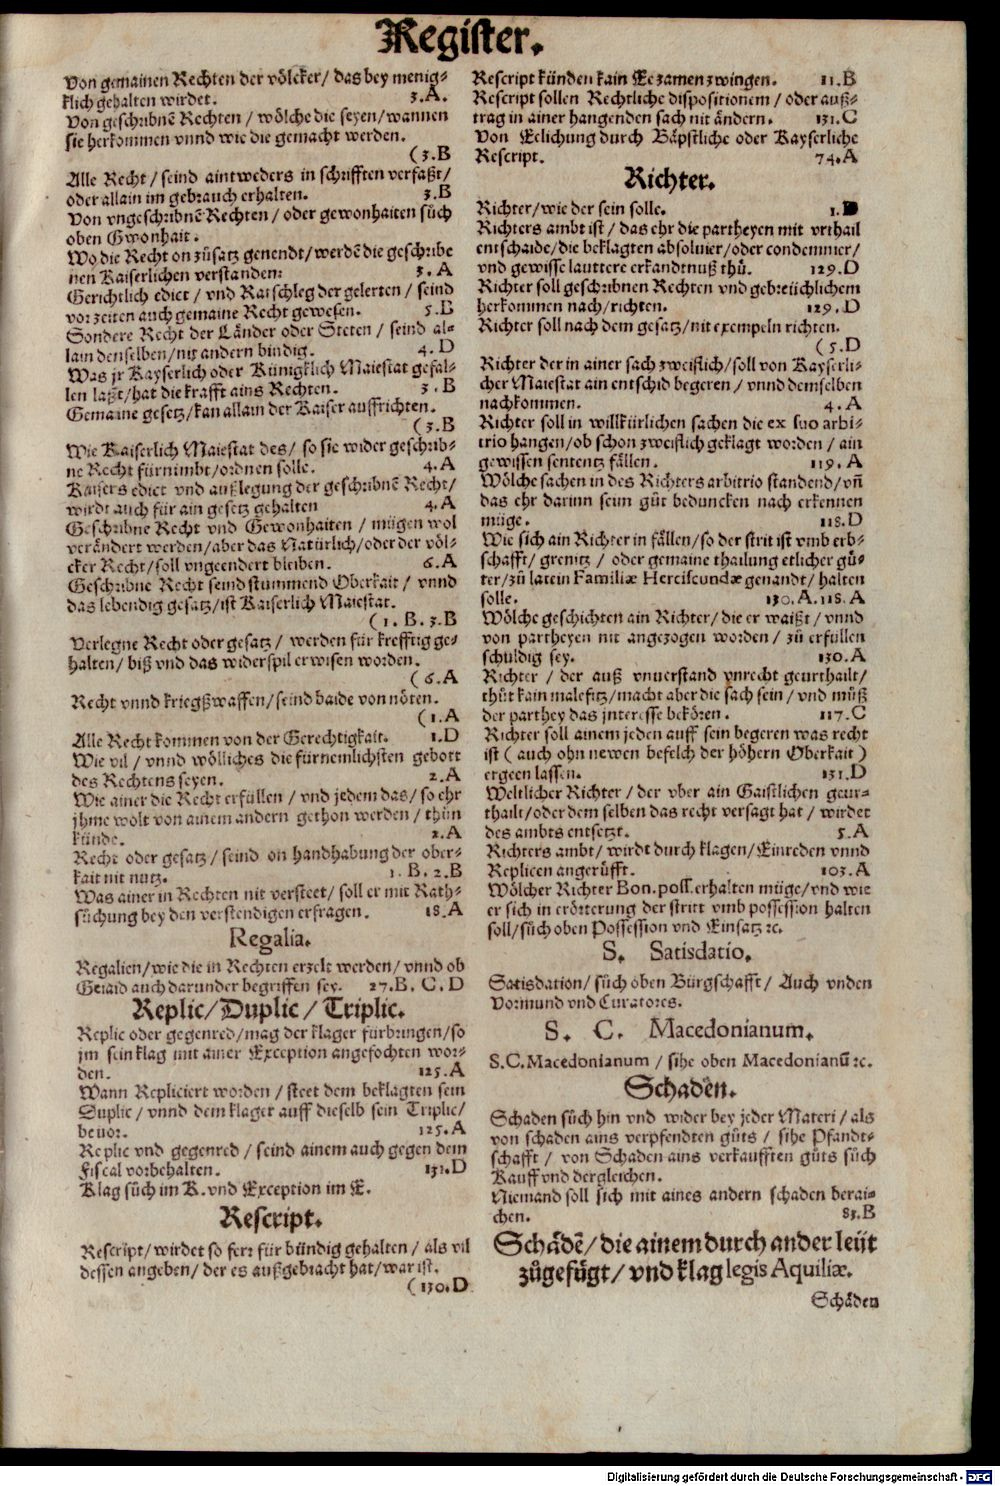 Register.
Von gemainen Rechten der völcker / das bey menig-
klich gehalten wirdet. 3.A.
Von geschribnē Rechten / wölche die seyen / wannen
sie herkommen vnnd wie die gemacht werden.
(3.B
Alle Recht / seind aintweders in schrifften verfaßt /
oder allain im gebrauch erhalten. 3.B
Von vngeschribnē Rechten / oder gewonhaiten sůch
oben Gwonhait.
Wo die Recht on zůsatz genendt / werdē die geschribe
nen Kaiserlichen verstanden: 3.A
Gerichtlich edict / vnd Ratschleg der gelerten / seind
vor zeiten auch gemaine Recht gewesen. 5.B
Sondere Recht der Länder oder Steten / seind al-
lain denselben / nit andern bindig. 4.D
Was jr Kayserlich oder Künigklich Maiestat gefal-
len laßt / hat die krafft ains Rechten. 3.B
Gemaine gesetz / kan allain der Kaiser auffrichten.
(3.B
Wie Kaiserlich Maiestat des / so sie wider geschrib-
ne Recht fürnimbt / ordnen solle. 4.A
Kaisers edict vnd außlegung der geschribnē Recht /
wirdt auch für ain gesetz gehalten 4.A
Geschribne Recht vnd Gewonhaiten / mügen wol
verändert werden / aber das Natürlich / oder der völ-
cker Recht / soll vngeendert bleiben. 6.A
Geschribne Recht seind stummend Oberkait / vnnd
das lebendig gesatz / ist Kaiserlich Maiestat.
(1.B.3.B
Verlegne Recht oder gesatz / werden für krefftig ge-
halten / biß vnd das widerspil erwisen worden.
(6.A
Recht vnnd kriegßwaffen / seind baide von nöten.
(1.A
Alle Recht kommen von der Gerechtigkait. 1.D
Wie vil / vnnd wölliches die fürnemlichsten gebott
des Rechtens seyen. 2.A
Wie ainer die Recht erfüllen / vnd jedem das / so ehr
jhme wolt von ainem andern gethon werden / thůn
künde. 2.A
Recht oder gesatz / seind on handhabung der ober-
kait nit nutz. 1.B.2.B
Was ainer in Rechten nit versteet / soll er mit Rath-
sůchung bey den verstendigen erfragen. 18.A
Regalia.
Regalien / wie die in Rechten erzelt werden / vnnd ob
Getaid auch darunder begriffen sey. 27.B.C.D
Replic / Duplic / Triplic.
Replic oder gegenred / mag der klager fürbringen / so
jm sein klag mit ainer Exception angefochten wor-
den. 125.A
Wann Repliciert worden / steet dem beklagten sein
Duplic / vnnd dem klager auff dieselb sein Triplic /
beuor. 125.A
Replic vnd gegenred / seind ainem auch gegen dem
Fiscal vorbehalten. 131.D
Klag sůch im K. vnd Exception im E.
Rescript.
Rescript / wirdet so ferr für bündig gehalten / als vil
dessen angeben / der es außgebracht hat / war ist.
(130.D
Rescript künden kain Ee zamen zwingen. 11.B
Rescript sollen Rechtliche dispositionem / oder auß-
trag in ainer hangenden sach nit ändern. 131.C
Von Eelichung durch Bäpstliche oder Kayserliche
Rescript. 74.A
Richter.
Richter / wie der sein solle. 1.D
Richters ambt ist / das ehr die partheyen mit vrthail
entschaide / die beklagten absoluier / oder condemnier /
vnd gewisse lauttere erkandtnuß thů. 129.D
Richter soll geschribnen Rechten vnd gebreüchlichem
herkommen nach / richten. 129.D
Richter soll nach dem gesatz / nit exempeln richten.
(5.D
Richter der in ainer sach zweiflich / soll von Kayserli-
cher Maiestat ain entschid begeren / vnnd demselben
nachkommen. 4.A
Richter soll in willkürlichen sachen die ex suo arbi-
trio hangen / ob schon zweiflich geklagt worden / ain
gewissen sententz fällen. 119.A
Wölche sachen in des Richters arbitrio standend / vñ
das ehr darinn seim gůt beduncken nach erkennen
müge. 118.D
Wie sich ain Richter in fällen / so der strit ist vmb erb-
schafft / grenitz / oder gemaine thailung etlicher gü-
ter / zů latein Familiæ Herciscundæ genandt / halten
solle. 130.A.118.A
Wölche geschichten ain Richter / die er waißt / vnnd
von partheyen nit angezogen worden / zů erfüllen
schuldig sey. 130.A
Richter / der auß vnuerstand vnrecht geurthailt /
thůt kain malefitz / macht aber die sach sein / vnd můß
der parthey das jnteresse bekören. 117.C
Richter soll ainem jeden auff sein begeren was recht
ist (auch ohn newen befelch der höhern Oberkait)
ergeen lassen. 131.D
Weltlicher Richter / der vber ain Gaistlichen geur-
thailt / oder dem selben das recht versagt hat / wirdet
des ambts entsetzt. 5.A
Richters ambt / wirdt durch klagen / Einreden vnnd
Replicen angerüfft. 103.A
Wölcher Richter Bon. poss. erhalten müge / vnd wie
er sich in erörterung der stritt vmb possession halten
soll / sůch oben Possession vnd Einsatz ꝛc.
S. Satisdatio.
Satisdation / sůch oben Bürgschafft / Auch vnden
Vormund vnd Curatores.
S. C. Macedonianum.
S.C. Macedonianum / sihe oben Macedonianū ꝛc.
Schaden.
Schaden sůch hin vnd wider bey jeder Materi / als
von schaden ains verpfendten gůts / sihe Pfandt-
schafft / von Schaden ains verkaufften gůts sůch
Kauff vnd dergleichen.
Niemand soll sich mit aines andern schaden berai-
chen. 83.B
Schädē / die ainem durch ander leüt
zůgefügt / vnd klag legis Aquiliæ.
Schäden
Digitalisierung gefördert durch die Deutsche Forschungsgemeinschaft - DFG